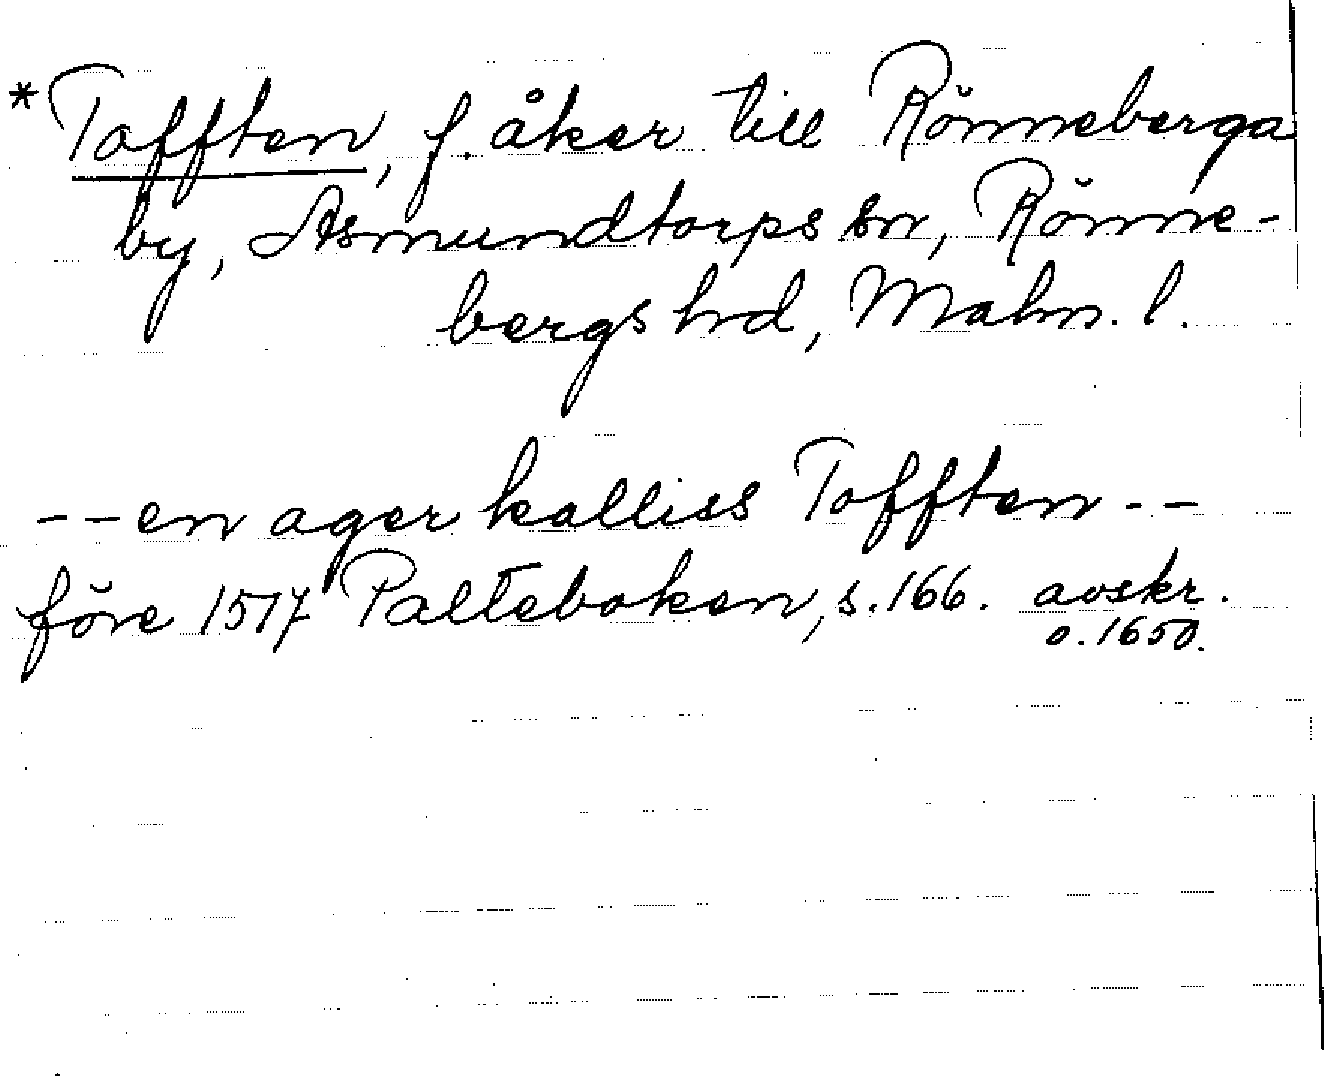 *Tofften, f. åker till Rönneberga
by, Asmundtorps sn, Rönne-
bergs hrd, Malm. l.
--en ager kalliss Tofften--
före 1517 Palteboken, s. 166. avskr.
o. 1650.